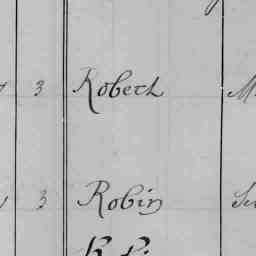 3 Robert M
3 Robin Se